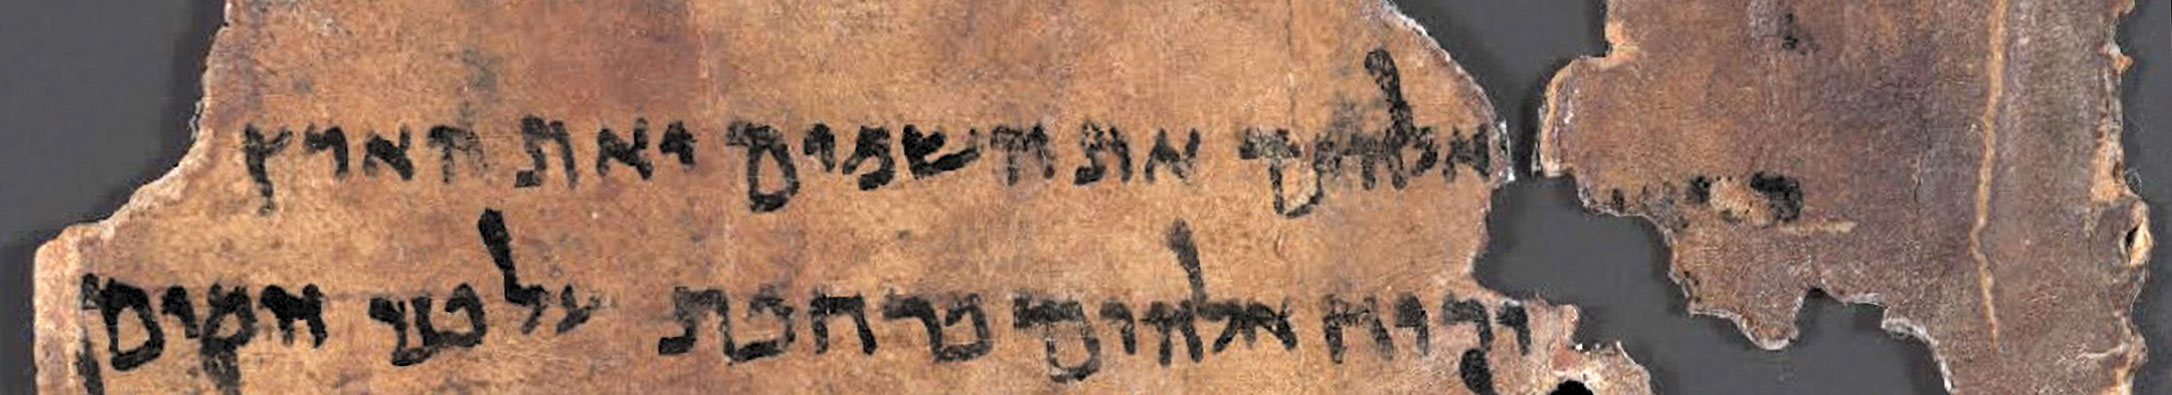 אלהים את השמים ואת הארץ
ורוח אלהים מרחפת על פני המים